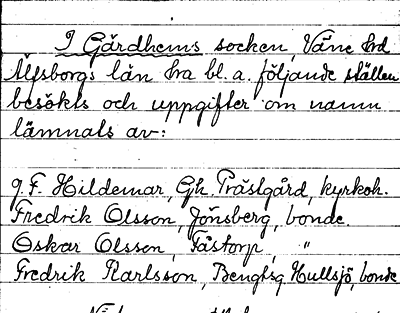 I Gärdhems socken, Väne hrd
Älfsborgs län ha bl. a. följande ställen
besökts och uppgifter om namn
lämnats av:
g. F. Hildemar, Gh. Prästgård, kyrkoh.
Fredrik Olsson, Jönsberg, bonde.
Oskar Olsson, Fästorp, "
Fredrik Karlsson, Bengtsg. Hullsjö, bonde